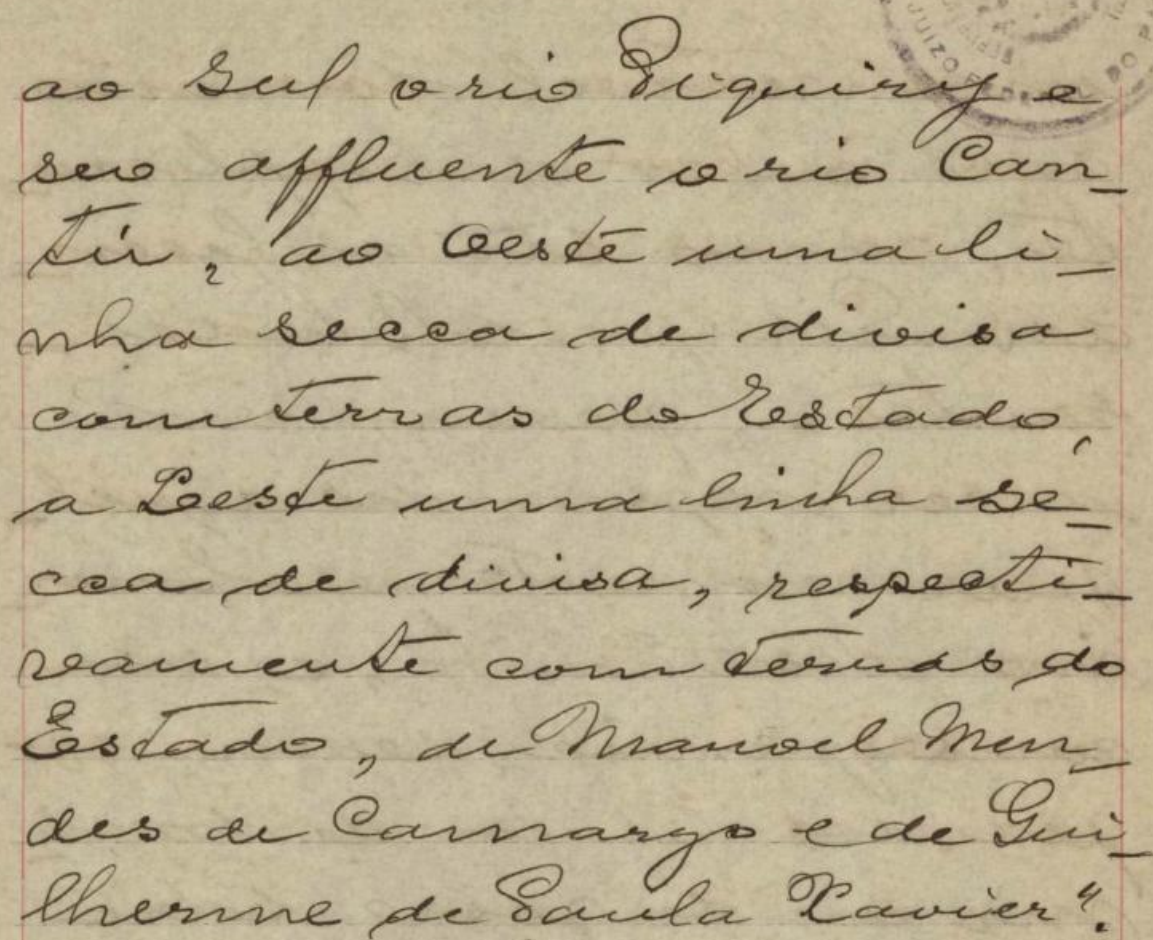 JUIZO FEDERAL DO P
ao Sul o rio Piquiry e
seo affluente o rio Can_
tú, ao Oeste uma li_
nha secca de divisa
com terras do Estado,
a Leste uma linha se_
cca de divisa, respecti_
vamente com terras do
Estado, de Manoel Men_
des de Camargo e de Gui_
lherme de Paula Xavier".